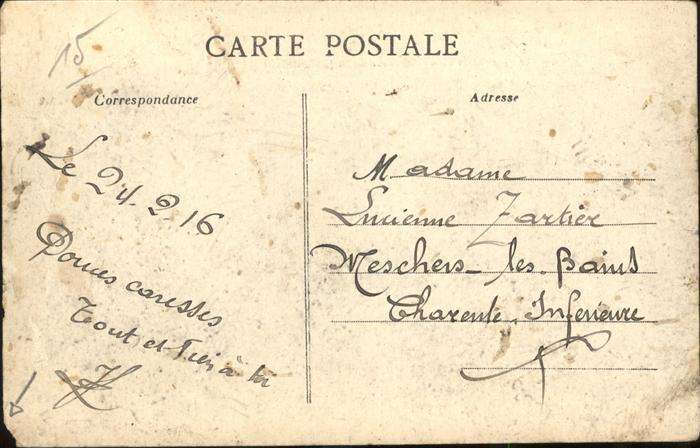 15
CARTE POSTALE
Correspondance
Le 24.2.16
Douces caresses
Tout et à toi
Adresse
Madame
Lucienne Zartier
Meschers-les-Bains
Charente Inferieure